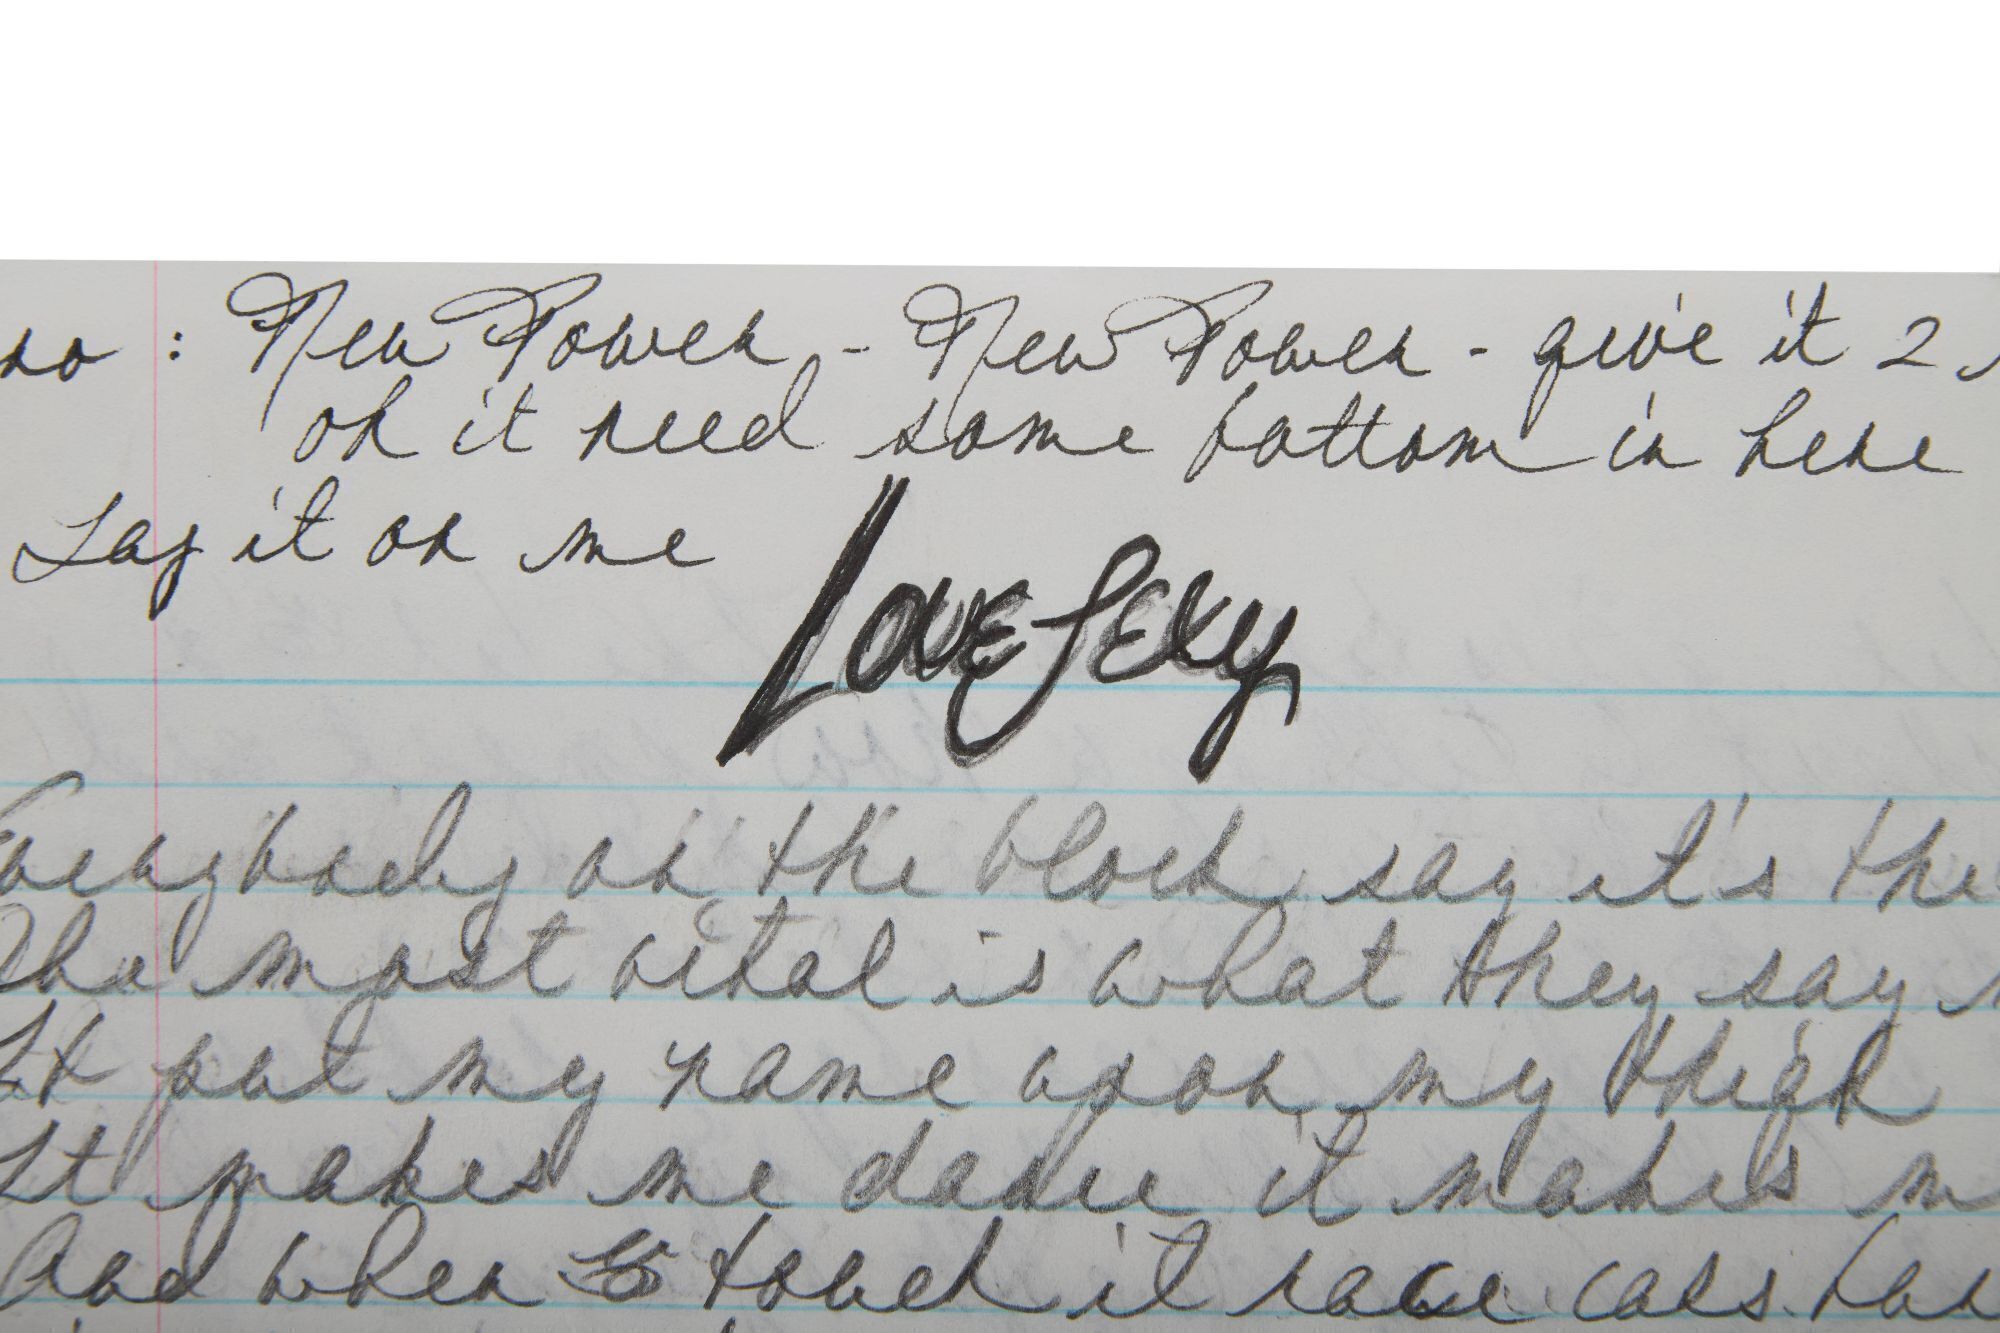 : New Power - New Power - give it 2
oh it need some bottom in here
Lay it on me
LOVESEXY
Everybody on the block say it's the
The most vital is what they say
It put my name upon my thigh
It makes me dance it makes m
And when touch it race cars